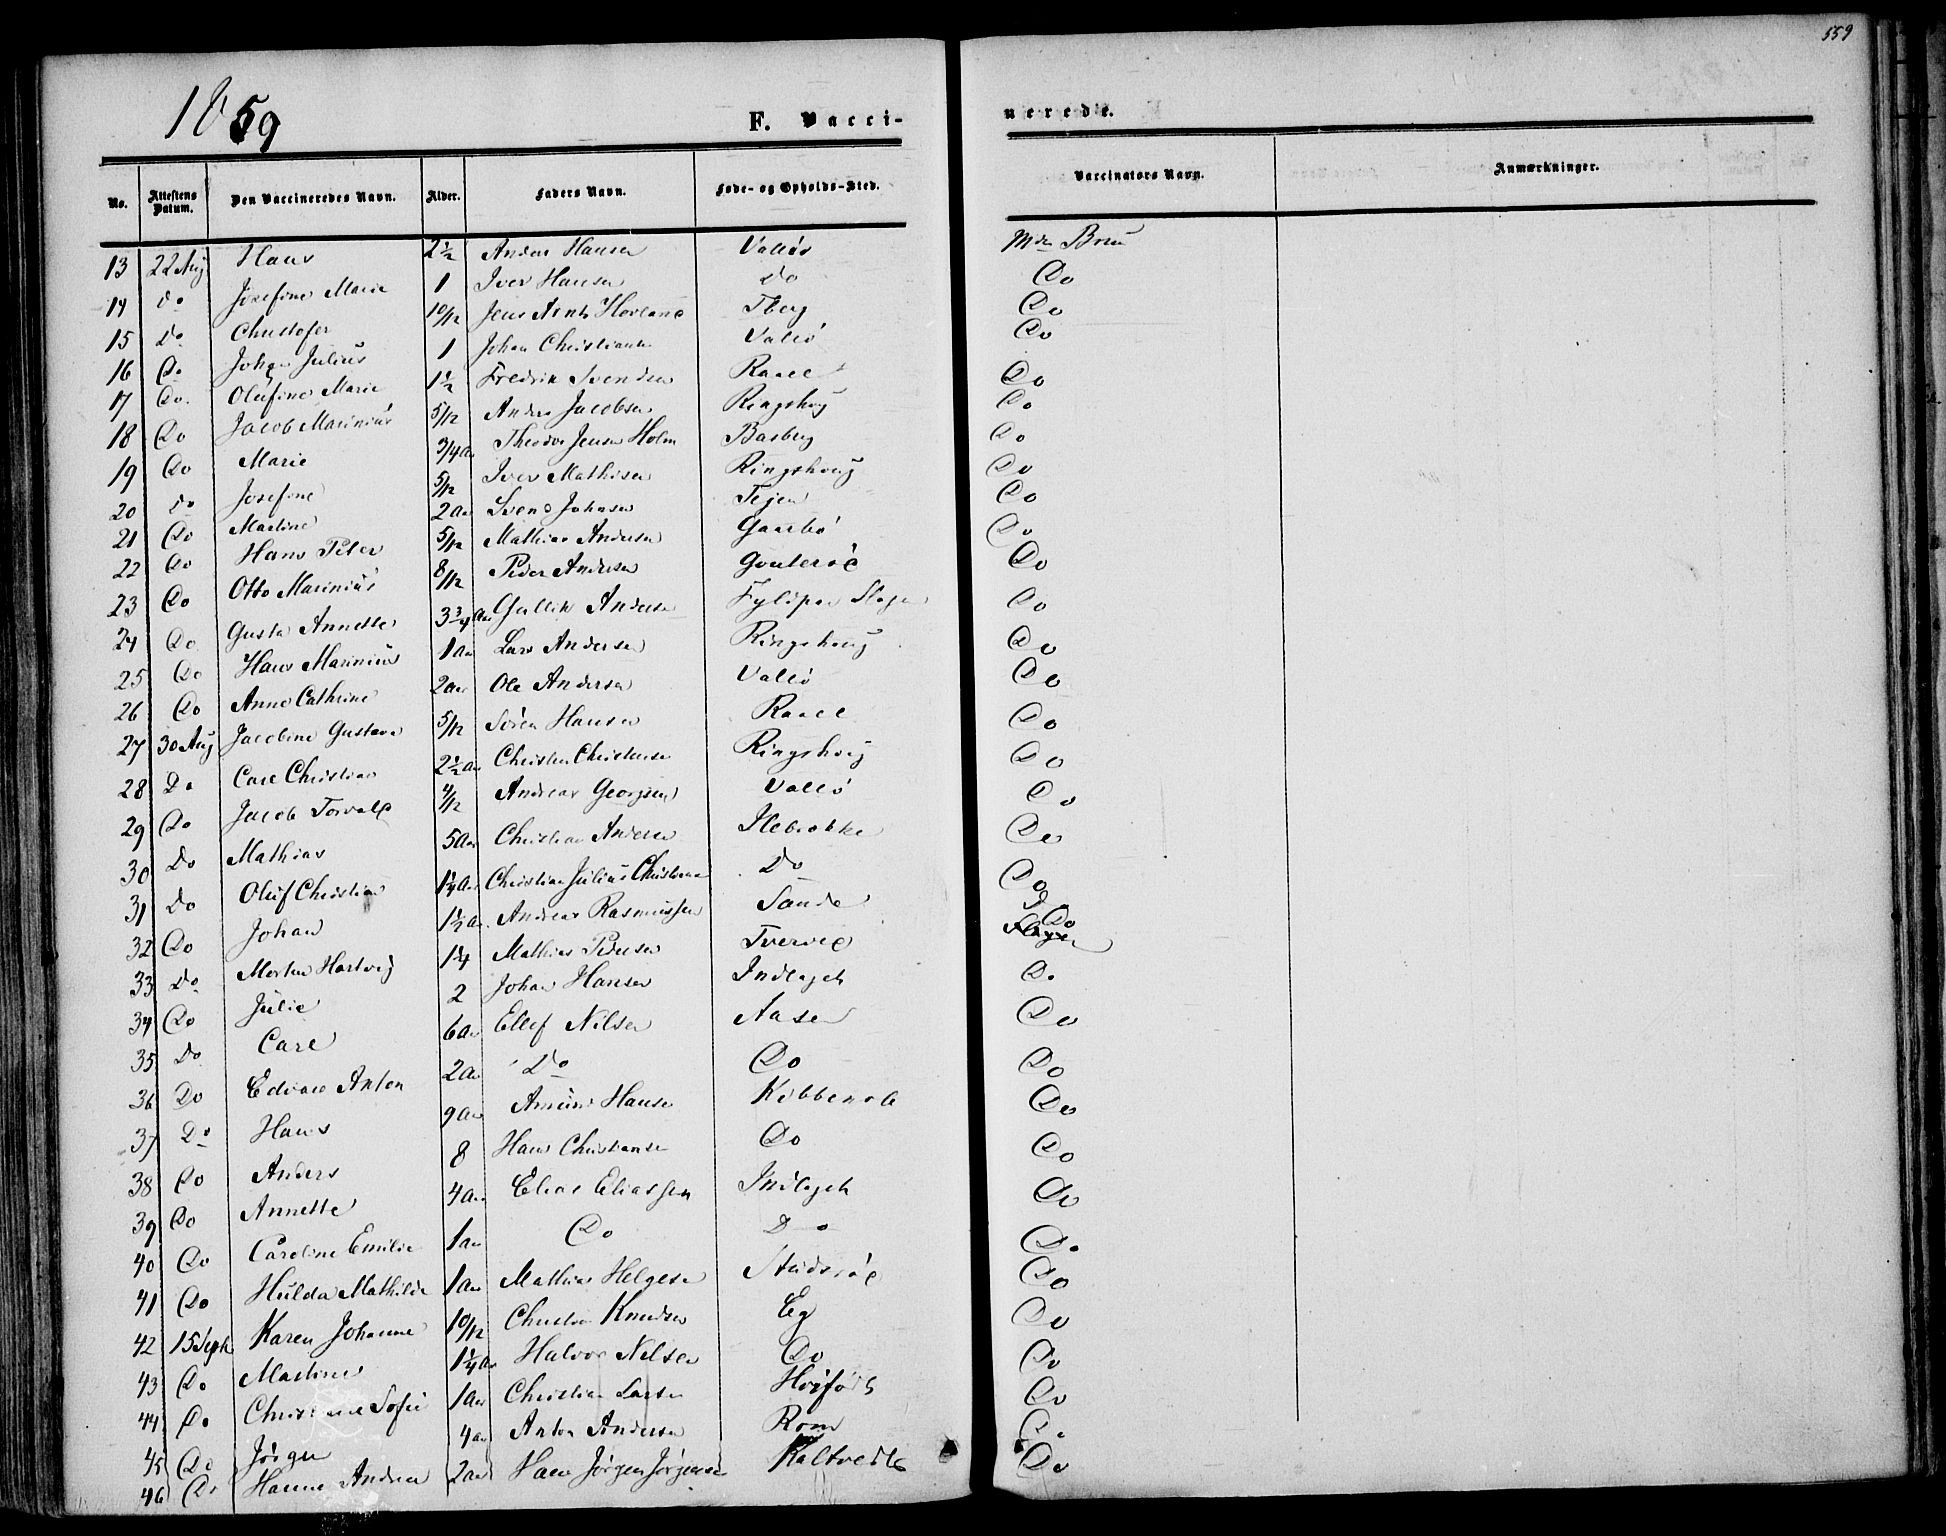 559
1859
F. Vacci-nerede.
No. Attestens Datum. Den Vaccineredes Navn. Alder. Faders Navn. Føde- og Opholds-Sted. Vaccinators Navn. Anmærkninger.
13 22 Aug Hans 2½ Anders Hansen Valløe Mdm Bruu
14 Do Josefine Marie 1 Iver Hansen Do Do
15 Do Christofer 10/12 Jens Arnts Hovland Tberg Do
16 Do Johan Julius 1 Johan Christiansen Vallø Do
17 Do Olufine Marie 1½ Fredrik Svendsen Rael Do
18 Do Jacob Marinius 5/12 Anders Jacobsen Ringshoug Do
19 Do Marie 3/4 aar Theodor Jensen Holm Basberg Do
20 Do Josefine 5/12 Iver Mathisen Ringshoug Do
21 Do Martine 2 aar Svend Johnsen Tejen Do
22 Do Hans Peter 5/12 Mathias Andersen Gaarbo Do
23 Do Otto Marinius 8/12 Peder Andersen Gouterød Do
24 Do Gusta Annette 3¾ aar Gullik Andersen Fylpaa Slagen Do
25 Do Hans Marinius 1 aar Lars Andersen Ringshoug Do
26 Do Anne Cathrine 2 aar Ole Andersen Vallø Do
27 30 Aug Jacobine Gustava 5/12 Søren Hansen Rael Do
28 Do Carl Christian 2½ aar Christen Christensen Ringshoug Do
29 Do Jacob Torvald 4/12 Andreas Georgsen Vallø Do
30 Do Mathias 5 aar Christian Andersen Ilebrække Do
31 Do Oluf Christian 1¼ aar Christian Julius Christiansen Do Do
32 Do Johan 1½ a. Andreas Rasmussen Sande Do
33 Do Morten Hartvig 1¼ Mathias Pedersen Tverved Do
34 Do Julie 2 Johan Hansen Indlagt Do
35 Do Carl 6 aar Ellef Nilsen Aasen Do
36 Do Edvard Anton 2 aar Do Do Do
37 Do Hans 9 aar Amund Hansen Kobberød Do
38 Do Anders 8 Hans Christiansen Do Do
39 Do Annette 4 aar Elias Eliassen Indlagt Do
40 Do Caroline Emilie 1 aar Do Do Do
41 Do Hulda Mathilde 1 aar Mathias Helgesen Studsrød Do
42 15 Septb Karen Johanne 10/12 Christen Knudsen Eg Do
43 Do Martine 1¼ aar Halvor Nilsen Do Do
44 Do Christiane Sofie 1 aar Christian Larsen Horfødt Do
45 Do Jørgen 4 aar Anton Andersen Rom Do
46 Do Hanne Andrea 2 aar Hans Jørgen Jørgensen Kaltvedt Do